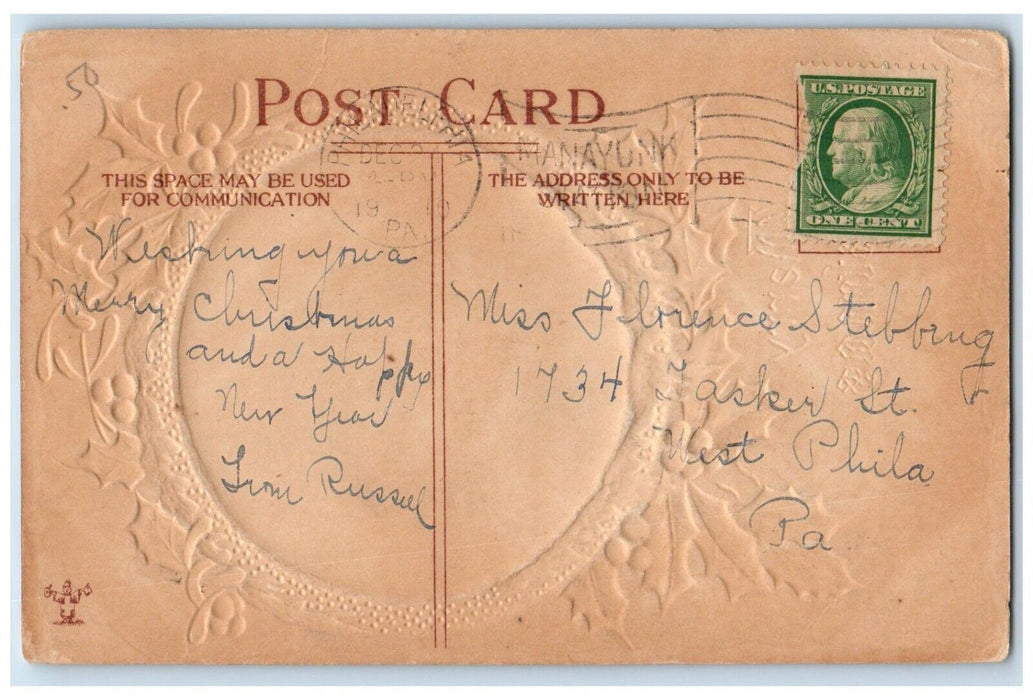 50
POST CARD
PHILADELPHIA
DEC
19
MANAYUNK
STATION
U.S. POSTAGE
ONE CENT
THIS SPACE MAY BE USED
FOR COMMUNICATION
THE ADDRESS ONLY TO BE
WRITTEN HERE
Wishing you a
Merry Christmas
and a Happy
New Year
From Russell
Miss Florence Stebbing
1734 Tasker St.
West Phila
Pa.